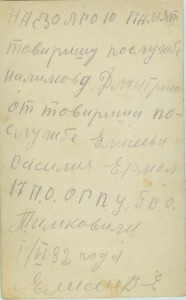 На долгою память
товарищу по службе
Налимову. Дмитрию
от товарища по-
службе Елисеева
Василия Ермол
17 П.О. ОГПУ. Б.В.О.
Тимковичи
1/II 32 года
Елисеев